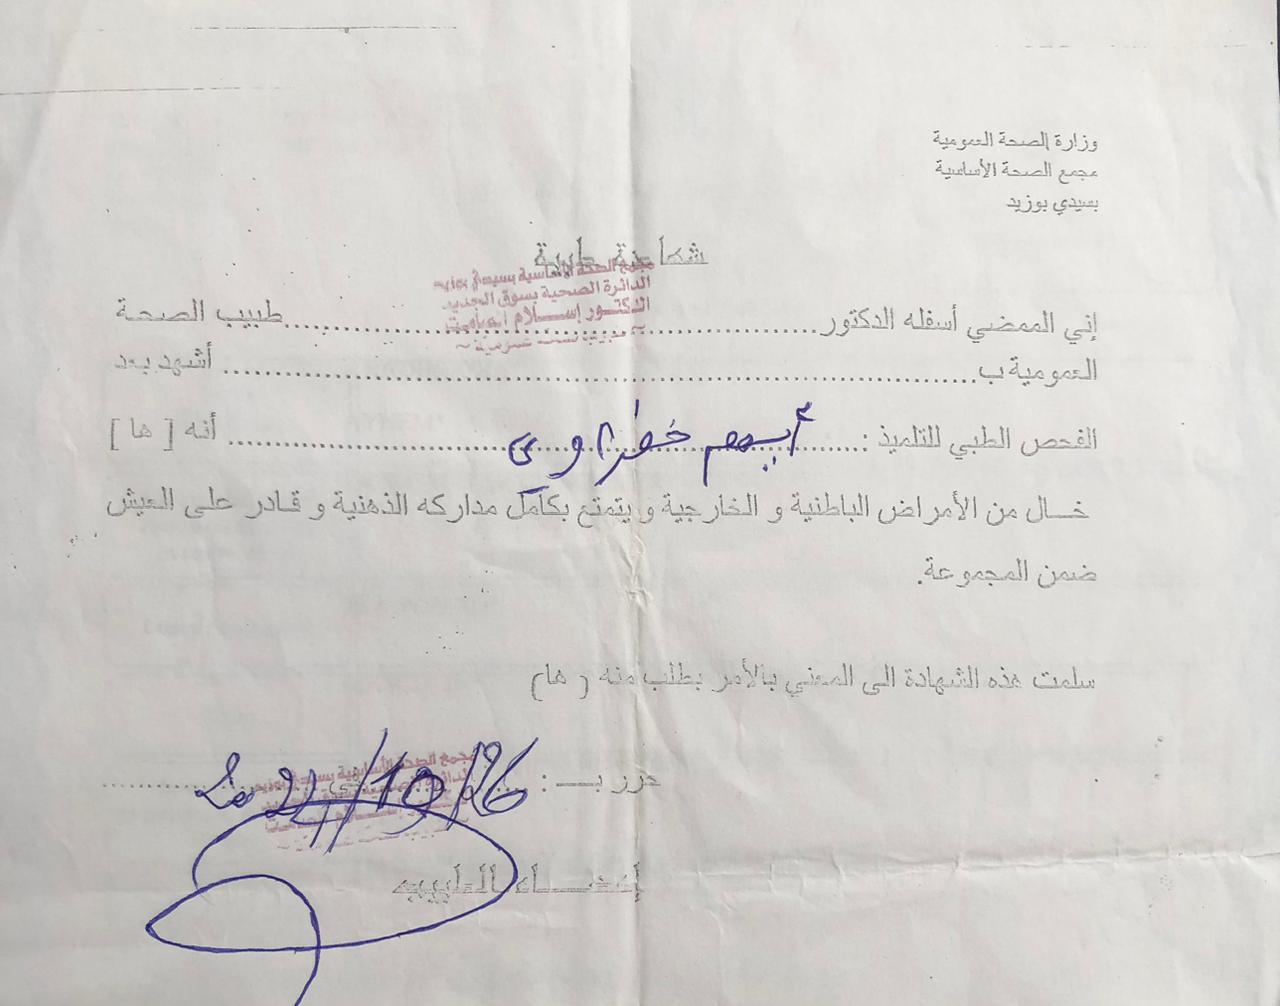 وزارة الصحة العمومية
مجمع الصحة الأساسية
بسيدي بوزيد
شهادة طبية
مجمع الصحة الأساسية بسيدي بوزيد
الدائرة الصحية بسوق الجديد
الدكتور إسلام
إني الممضي أسفله الدكتور........................................................طبيب الصحة
العمومية ب........................................................ أشهد بعد
الفحص الطبي للتلميذ :........ أيهم خضراوي ........ أنه [ ها ]
خال من الأمراض الباطنية و الخارجية و يتمتع بكامل مداركه الذهنية و قادر على العيش
ضمن المجموعة.
سلمت هذه الشهادة الى المعني بالأمر بطلب منه ( ها)
حرر بـ : ........ في 2024/10/26
مجمع الصحة الأساسية بسيدي بوزيد
إمضاء الطبيب